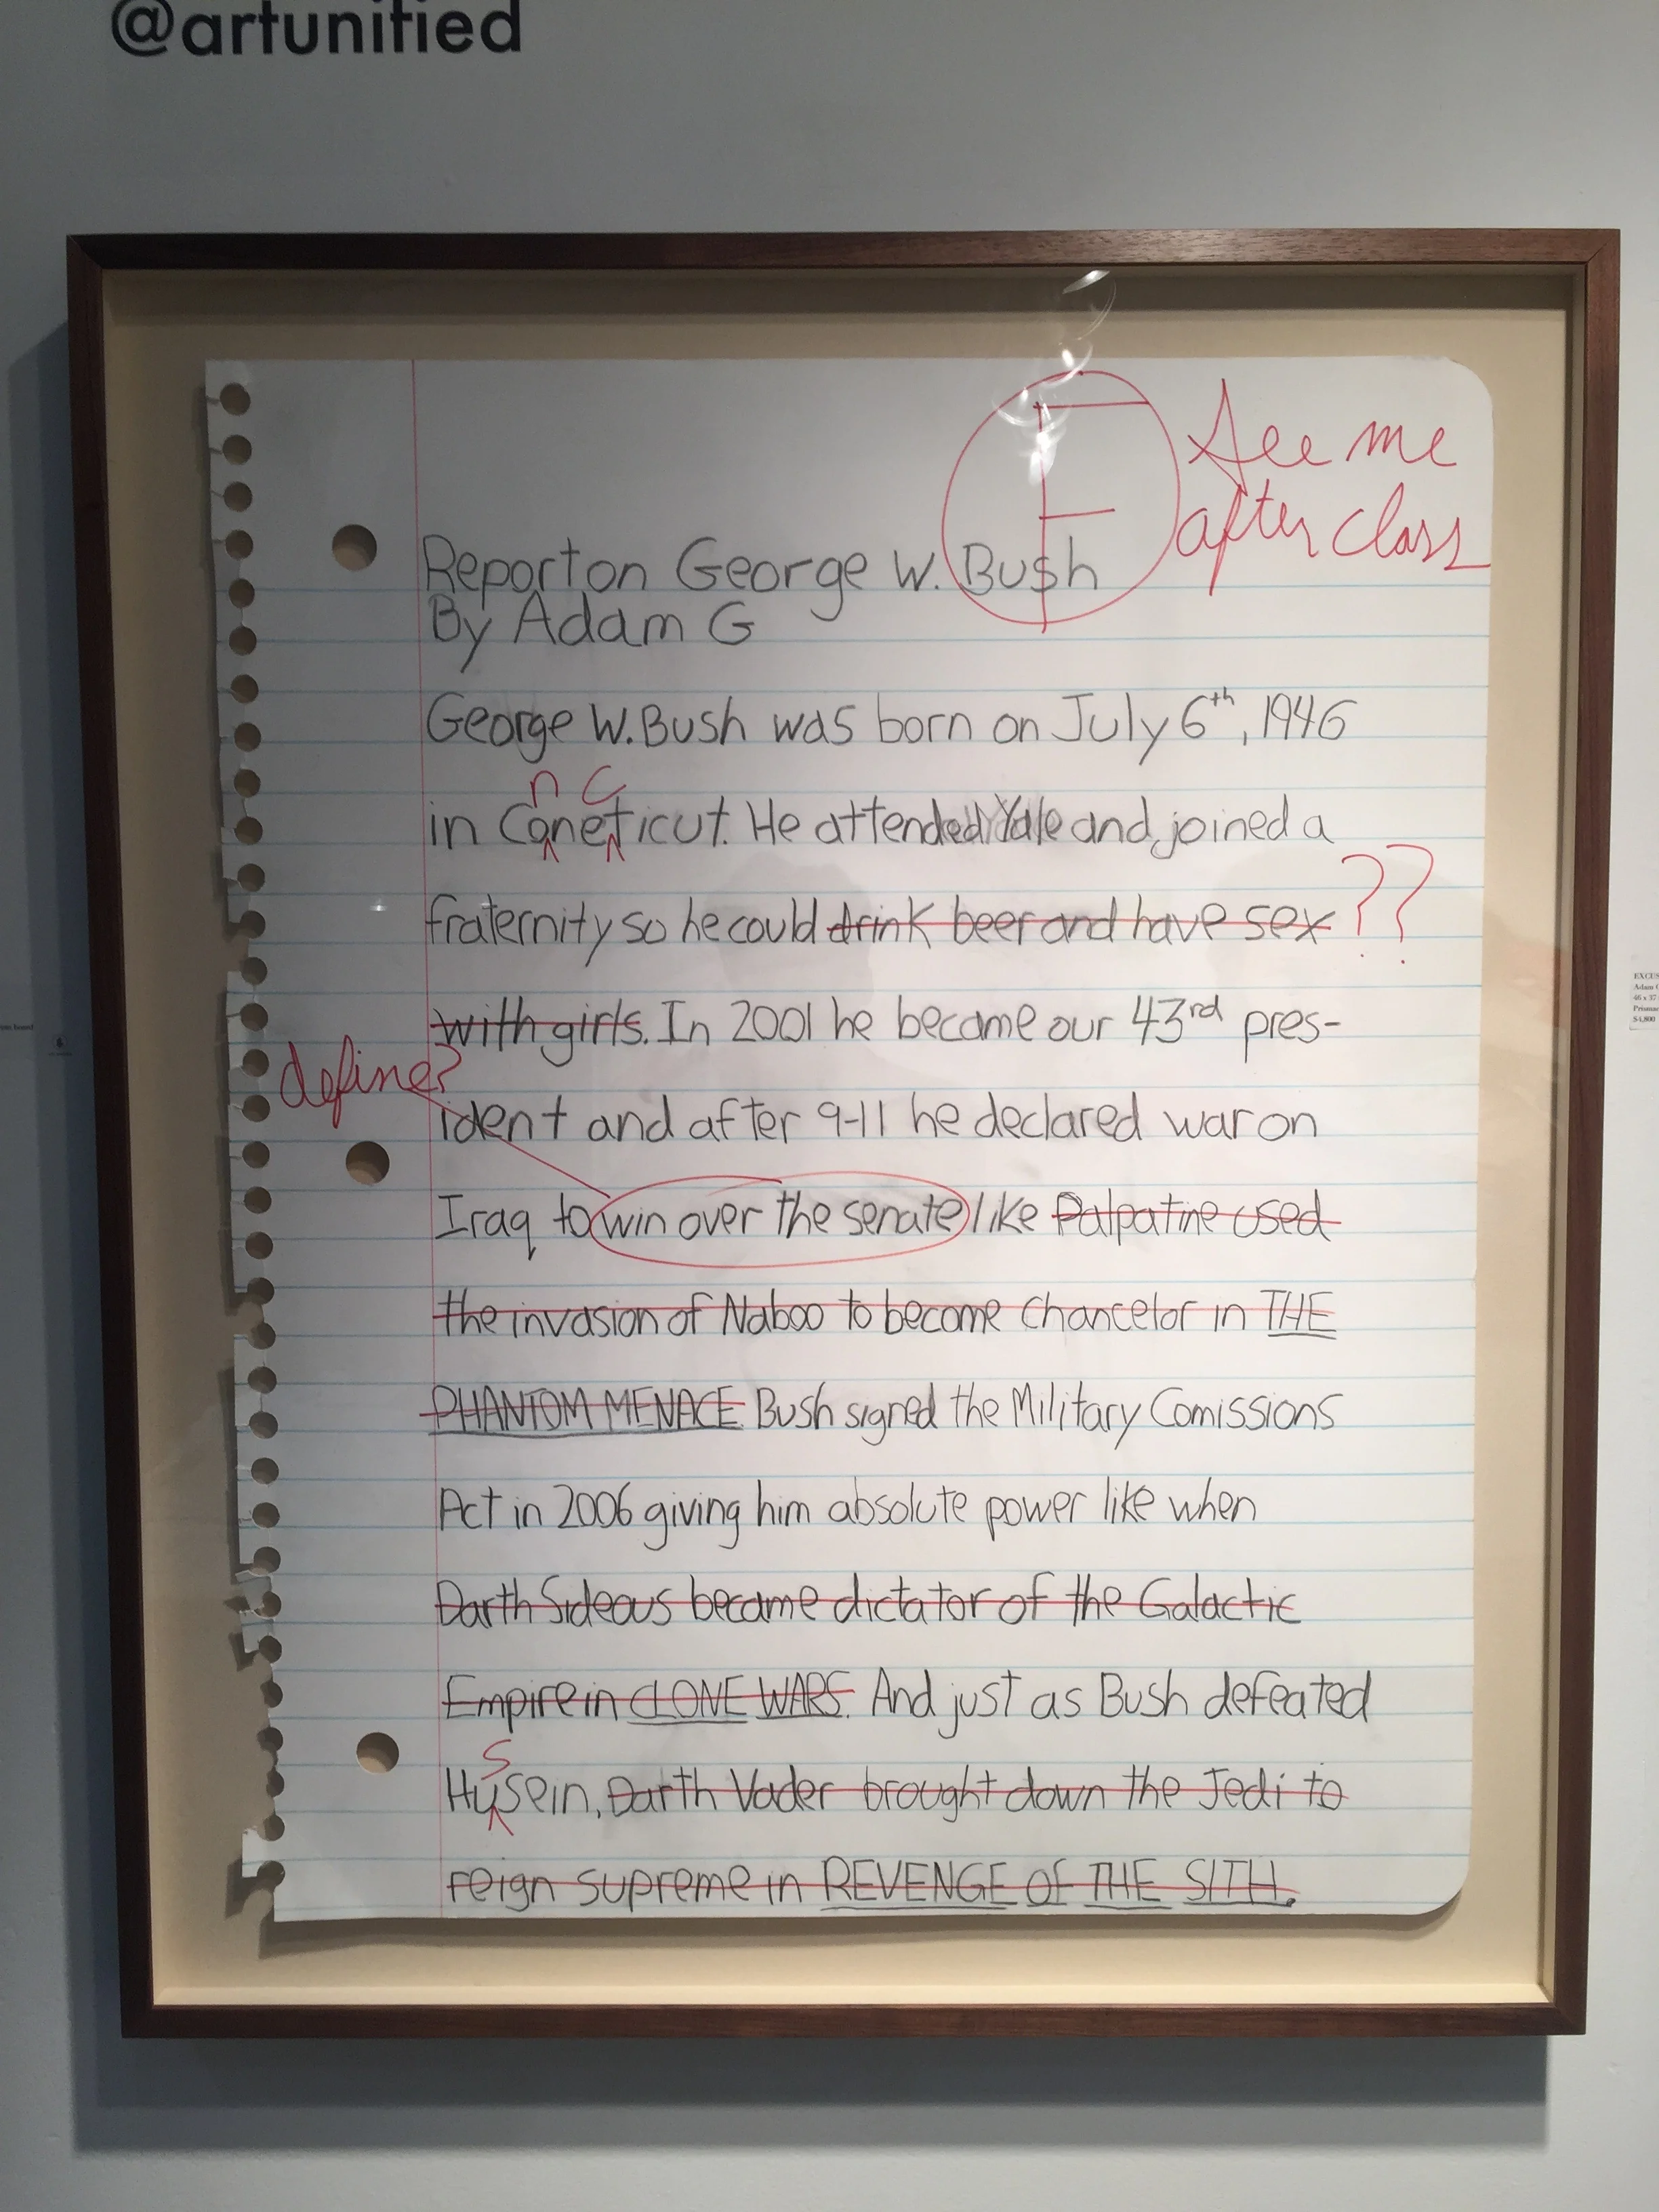 @artunified
F
See me
after class
Report on George W. Bush
By Adam G
George W. Bush was born on July 6th, 1946
n c
in Coneticut. He attended Yale and joined a
fraternity so he could drink beer and have sex ??
with girls. In 2001 he became our 43rd pres-
define?
ident and after 9-11 he declared war on
Iraq to win over the senate like Palpatine used
the invasion of Naboo to become Chancelor in THE
PHANTOM MENACE. Bush signed the Military Comissions
Act in 2006 giving him absolute power like when
Darth Sideous became dictator of the Galactic
Empire in CLONE WARS. And just as Bush defeated
s
Husein, Darth Vader brought down the Jedi to
reign supreme in REVENGE OF THE SITH.
EXCUS
Adam G
46 x 37
Prismac
$4,800